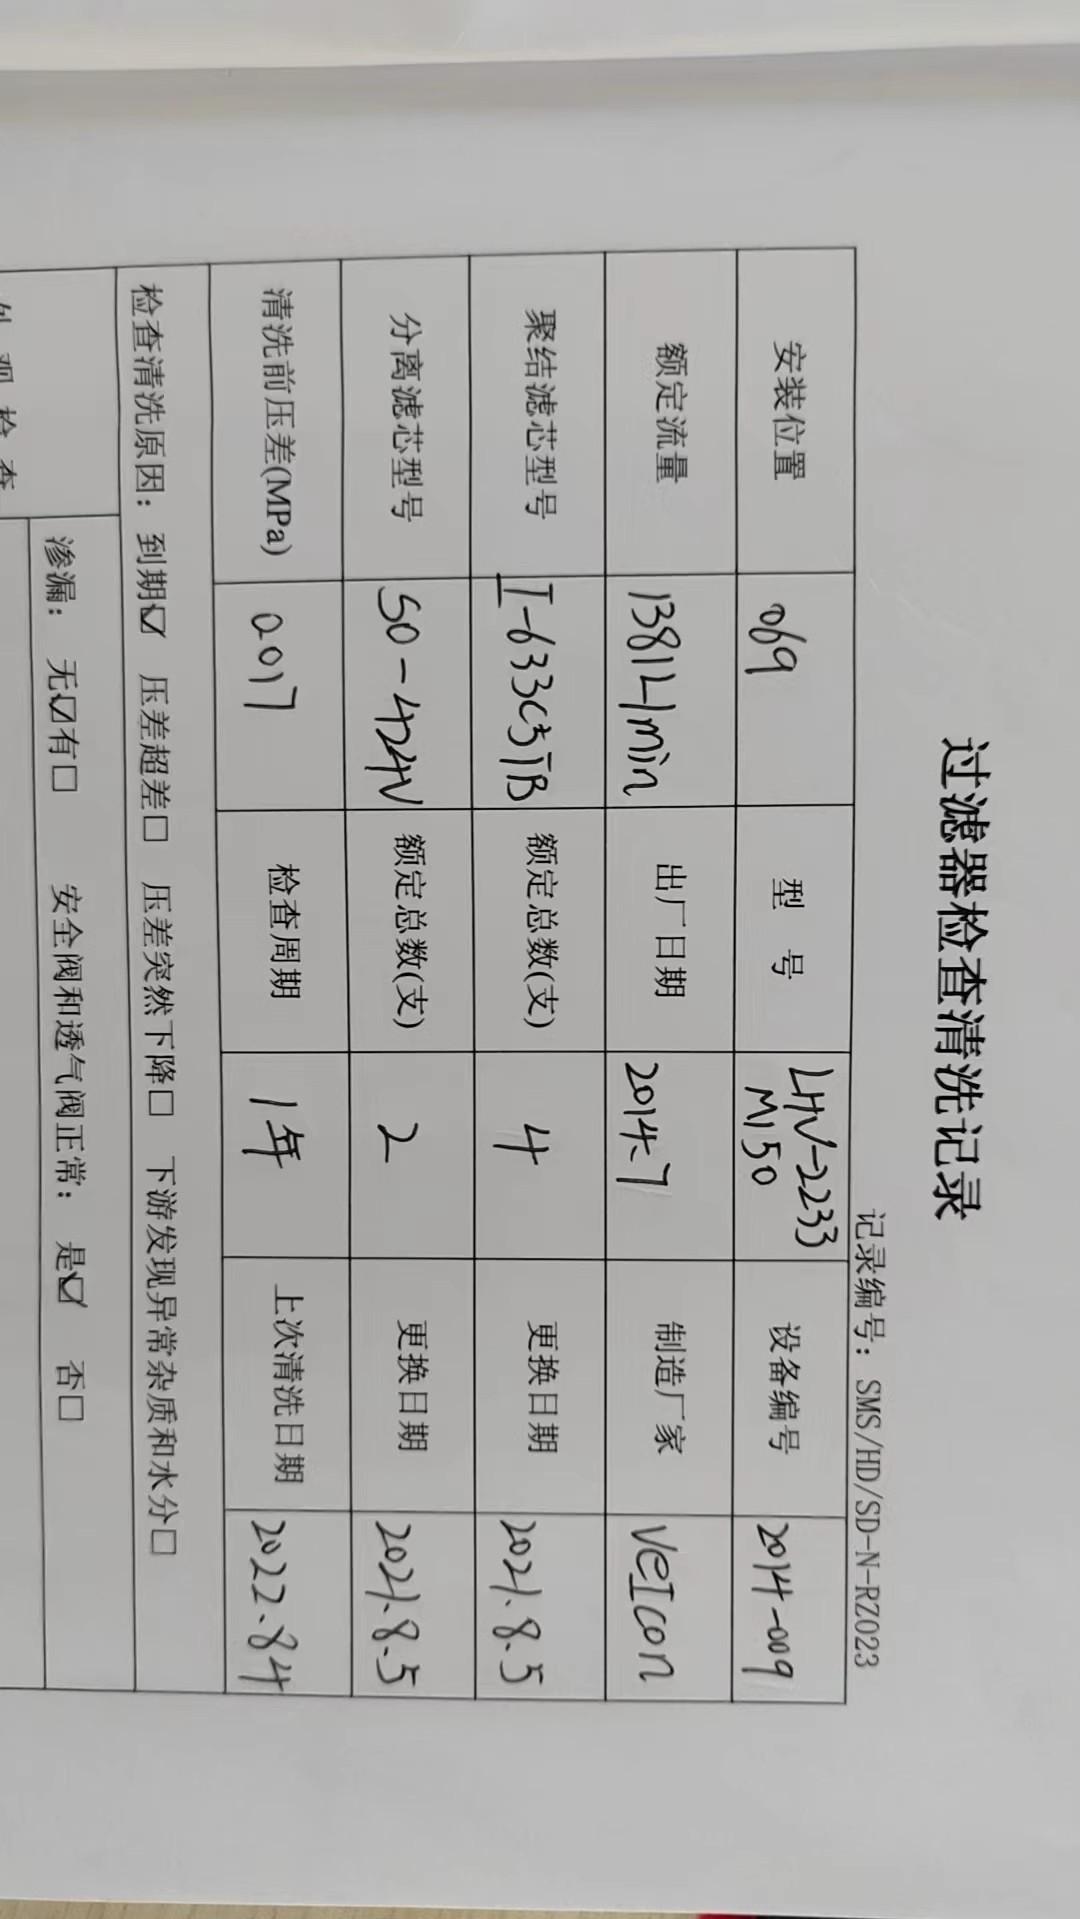 过滤器检查清洗记录
记录编号：SMS/HD/SD-N-RZ023
安装位置 069 型 号 LHV-2233 M150 设备编号 2014-009
额定流量 1381L/min 出厂日期 2014.7 制造厂家 VeIcon
聚结滤芯型号 I-633C5TB 额定总数(支) 4 更换日期 2021.8.5
分离滤芯型号 SO-424V 额定总数(支) 2 更换日期 2021.8.5
清洗前压差(MPa) 0.017 检查周期 1年 上次清洗日期 2022.8.4
检查清洗原因：到期☑ 压差超差□ 压差突然下降□ 下游发现异常杂质和水分□
外观检查
渗漏：无☑有□ 安全阀和透气阀正常：是☑ 否□